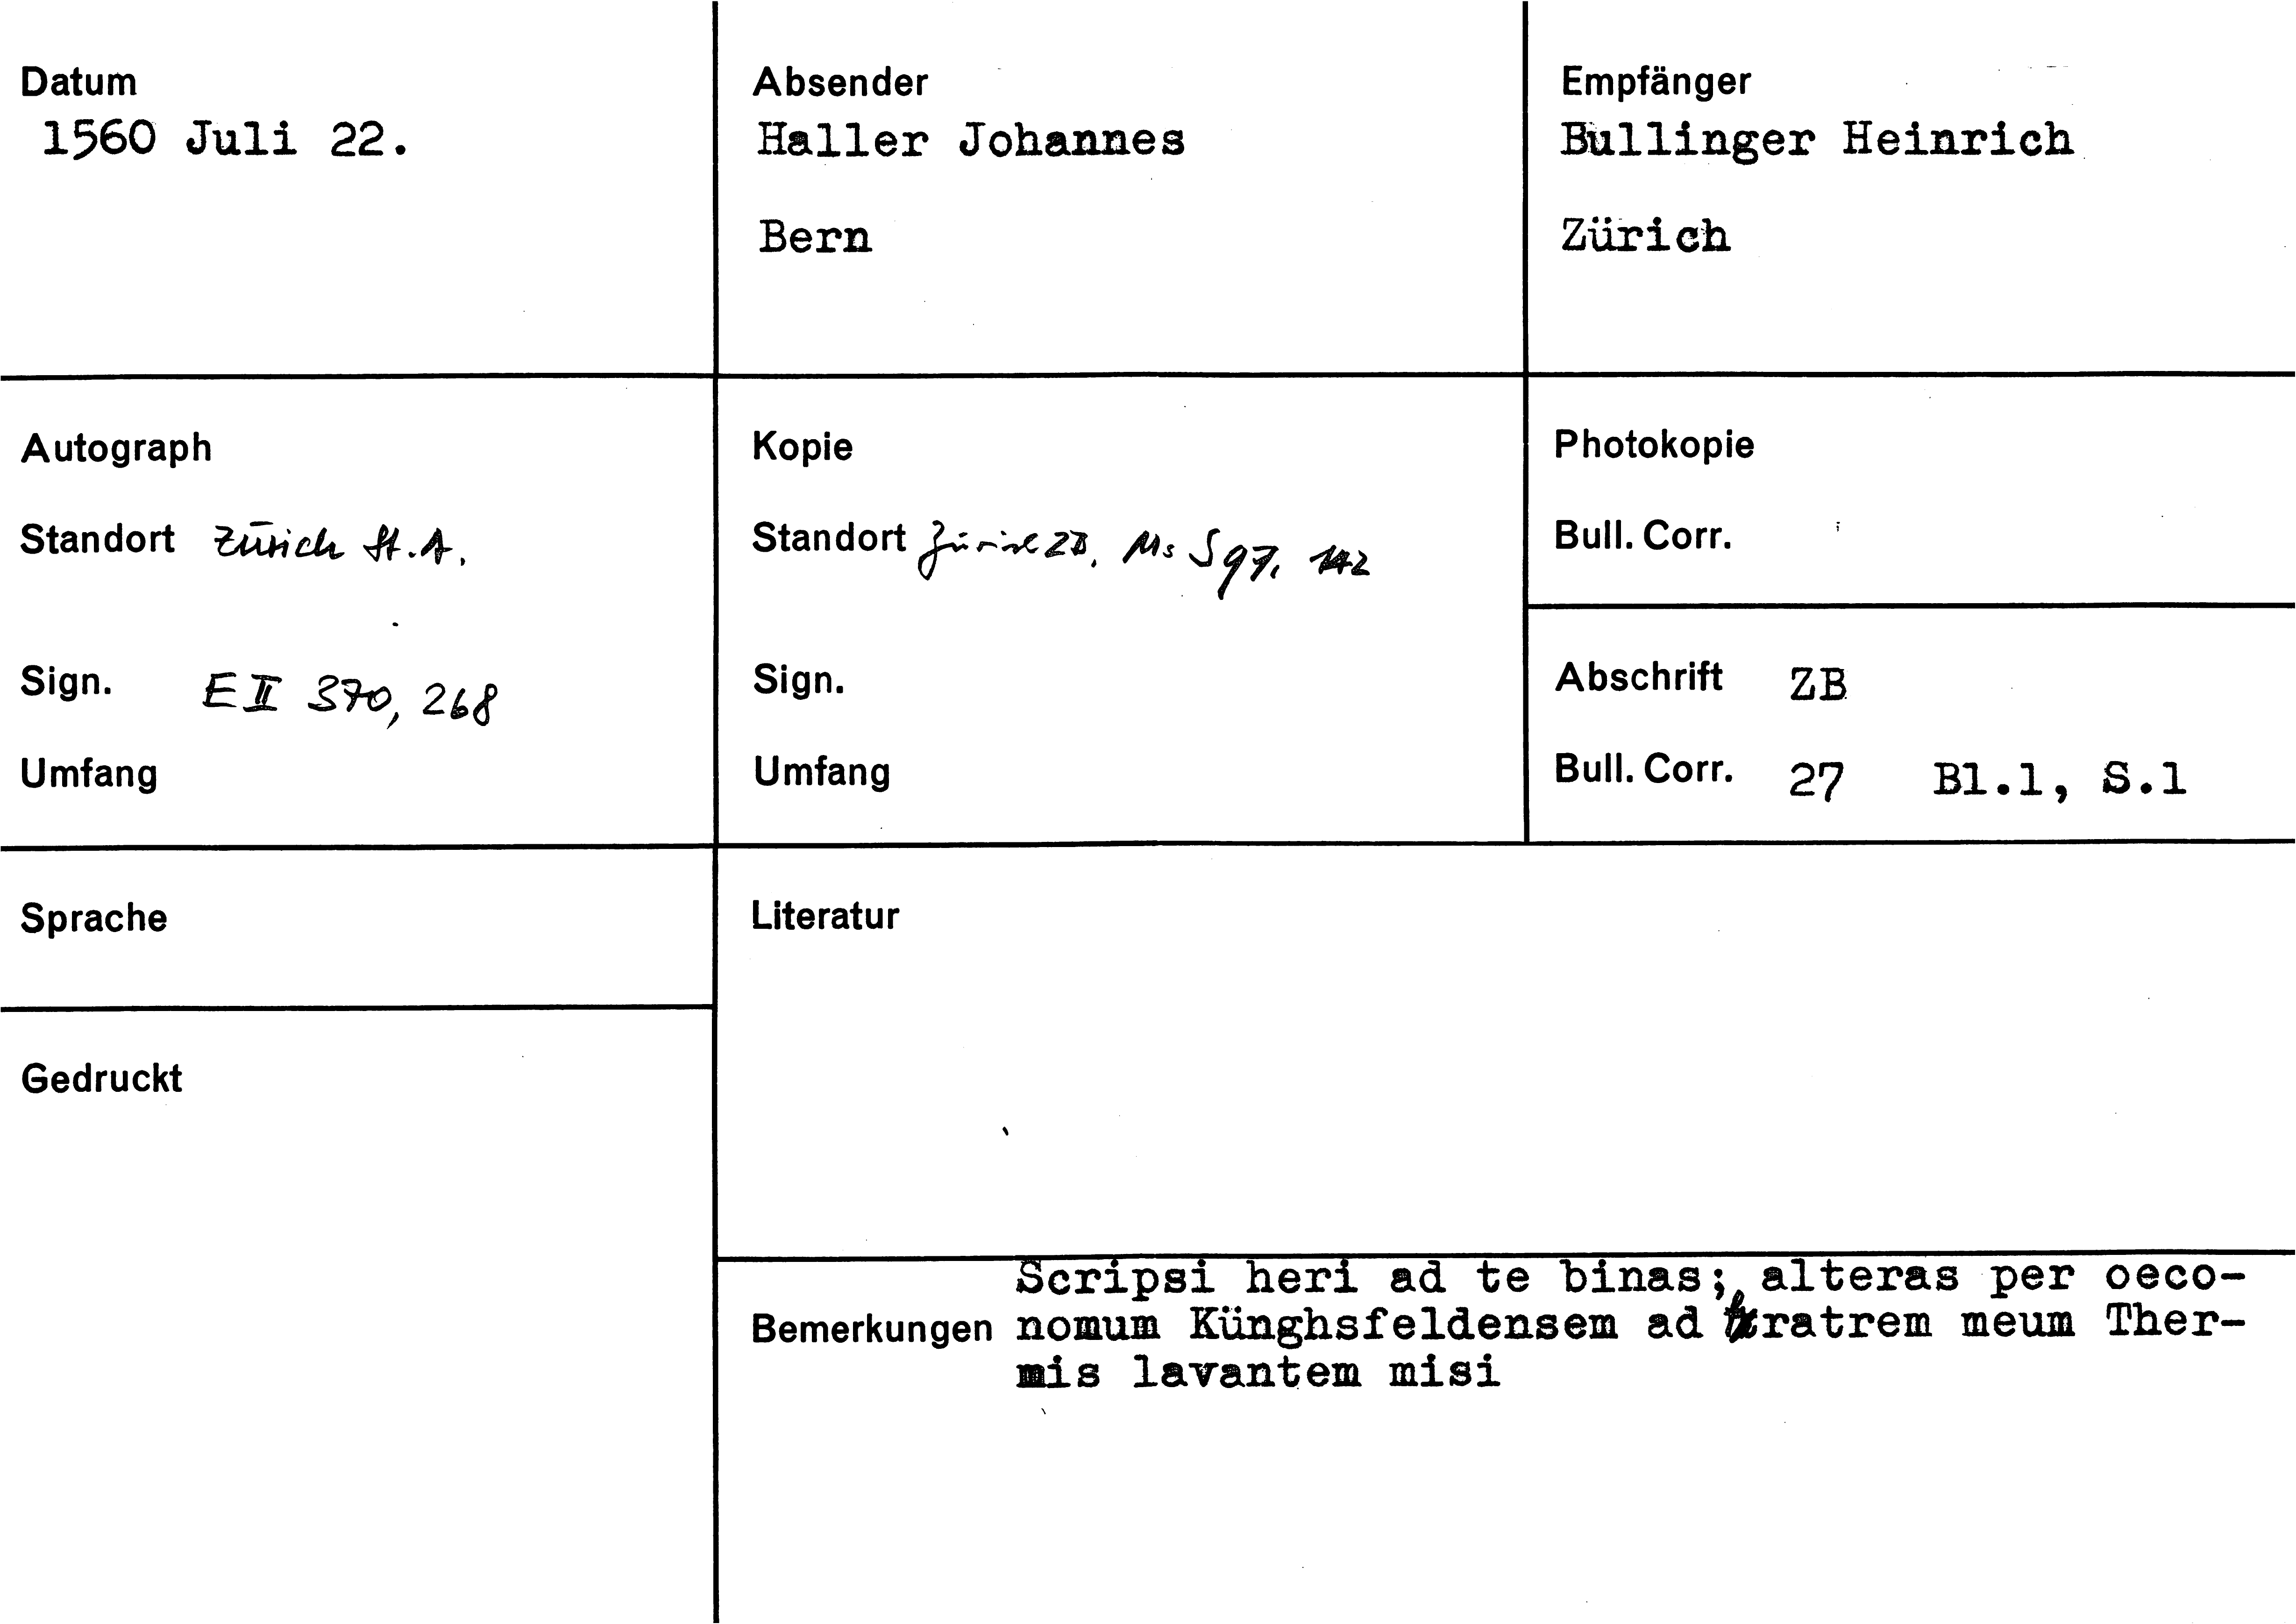 Datum
1560 Juli 22.
Absender
Haller Johannes
Bern
Empfänger
Bullinger Heinrich
Zürich
Autograph
Standort Zürich St.A.
Sign. E II 370, 268
Umfang
Kopie
Standort Zürich ZB, Ms S 97, 142
Sign.
Umfang
Photokopie
Bull. Corr.
Abschrift ZB
Bull. Corr. 27 Bl.1, S.1
Sprache
Literatur
Gedruckt
Bemerkungen
Scripsi heri ad te binas; alteras per oeco-
nomum Künghsfeldensem ad fratrem meum Ther-
mis lavantem misi